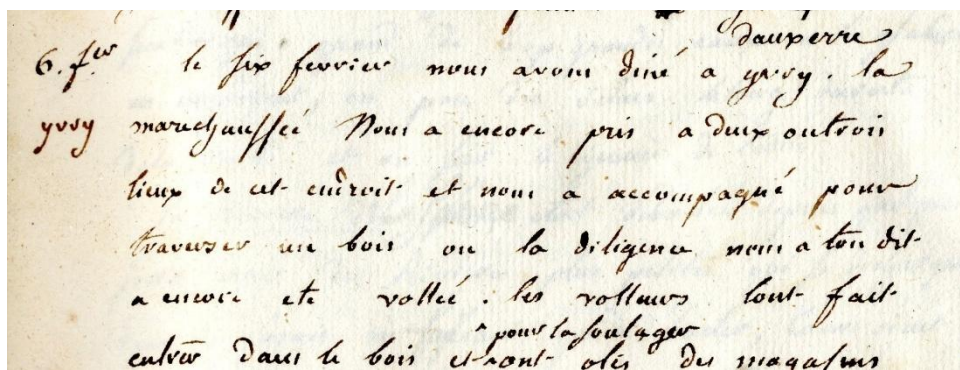 dauxerre
6. fer le six fevrier nous avons diné a yvry. la
yvry marechaussée Nous a encore pris a deux outrois
lieux de cet endroit et nous a accompagné pour
traverser un bois ou la diligence nous a ton dit
a encore ete vollée. les volleurs lont fait
^ pour la soulager
entrer dans le bois et ont otés des magasins